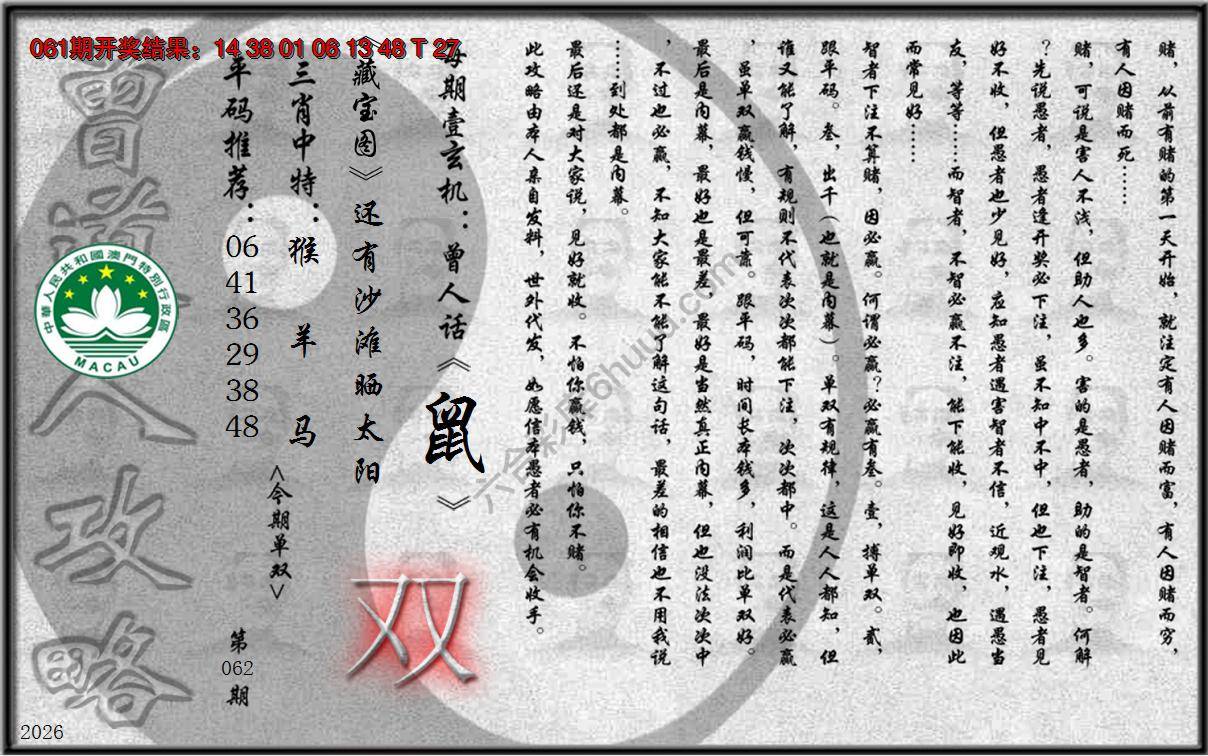 061期开奖结果：14 38 01 06 13 48 T 27
赌，从前有赌的第一天开始，就注定有人因赌而富，有人因赌而穷，
有人因赌而死……
赌，可说是害人不浅，但助人也多。害的是愚者，助的是智者。何解
？先说愚者，愚者逢开奖必下注，虽不知中不中，但也下注，愚者见
好不收，但愚者也少见好，应知愚者遇害智者不信，近观水，遇愚当
友，等等……而智者，不智必赢不注，能下能收，见好即收，也因此
而常见好……
智者下注不算赌，因必赢。何谓必赢？必赢有叁。壹，搏单双。贰，
跟平码。叁，出千（也就是内幕）。单双有规律，这是人人都知，但
谁又能了解，有规则不代表次次都能下注，次次都中。而是代表必赢
，虽单双赢钱慢，但可靠。跟平码，时间长本钱多，利润比单双好。
最后是内幕，最好也是最差，最好是当然真正内幕，但也没法次次中
，不过也必赢，不知大家能不能了解这句话，最差的相信也不用我说
……到处都是内幕。
最后还是对大家说，见好就收。不怕你赢钱，只怕你不赌。
此攻略由本人亲自发料，世外代发，如愿信本愚者必有机会收手。
每期壹玄机：曾人话《鼠》
《藏宝图》还有沙滩晒太阳
双
三肖中特：猴 羊 马
<今期单双>
平码推荐：06 41 36 29 38 48
第062期
曾道人攻略
中華人民共和國澳門特別行政區
MACAU
六合彩库6huuu.com
2026